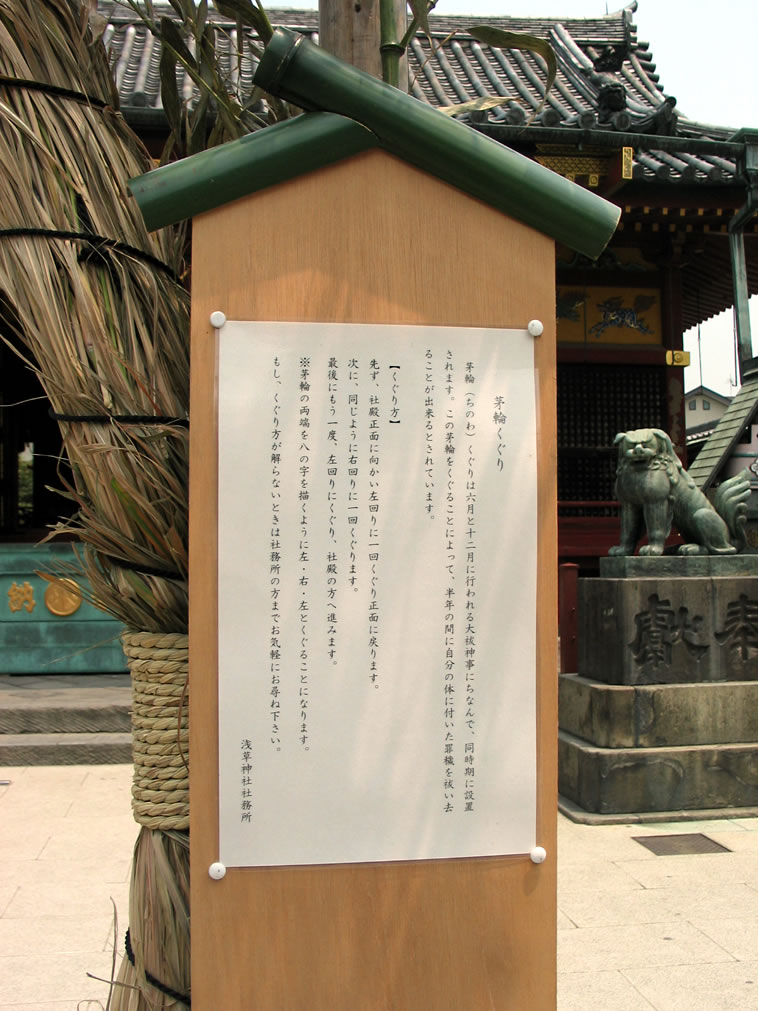 茅輪くぐり
茅輪（ちのわ）くぐりは六月と十二月に行われる大祓神事にちなんで、同時期に設置
されます。この茅輪をくぐることによって、半年の間に自分の体に付いた罪穢を祓い去
ることが出来るとされています。
【くぐり方】
先ず、社殿正面に向かい左回りに一回くぐり正面に戻ります。
次に、同じように右回りに一回くぐります。
最後にもう一度、左回りにくぐり、社殿の方へ進みます。
※茅輪の両端を八の字を描くように左・右・左とくぐることになります。
もし、くぐり方が解らないときは社務所の方までお気軽にお尋ね下さい。
浅草神社社務所
奉献
納